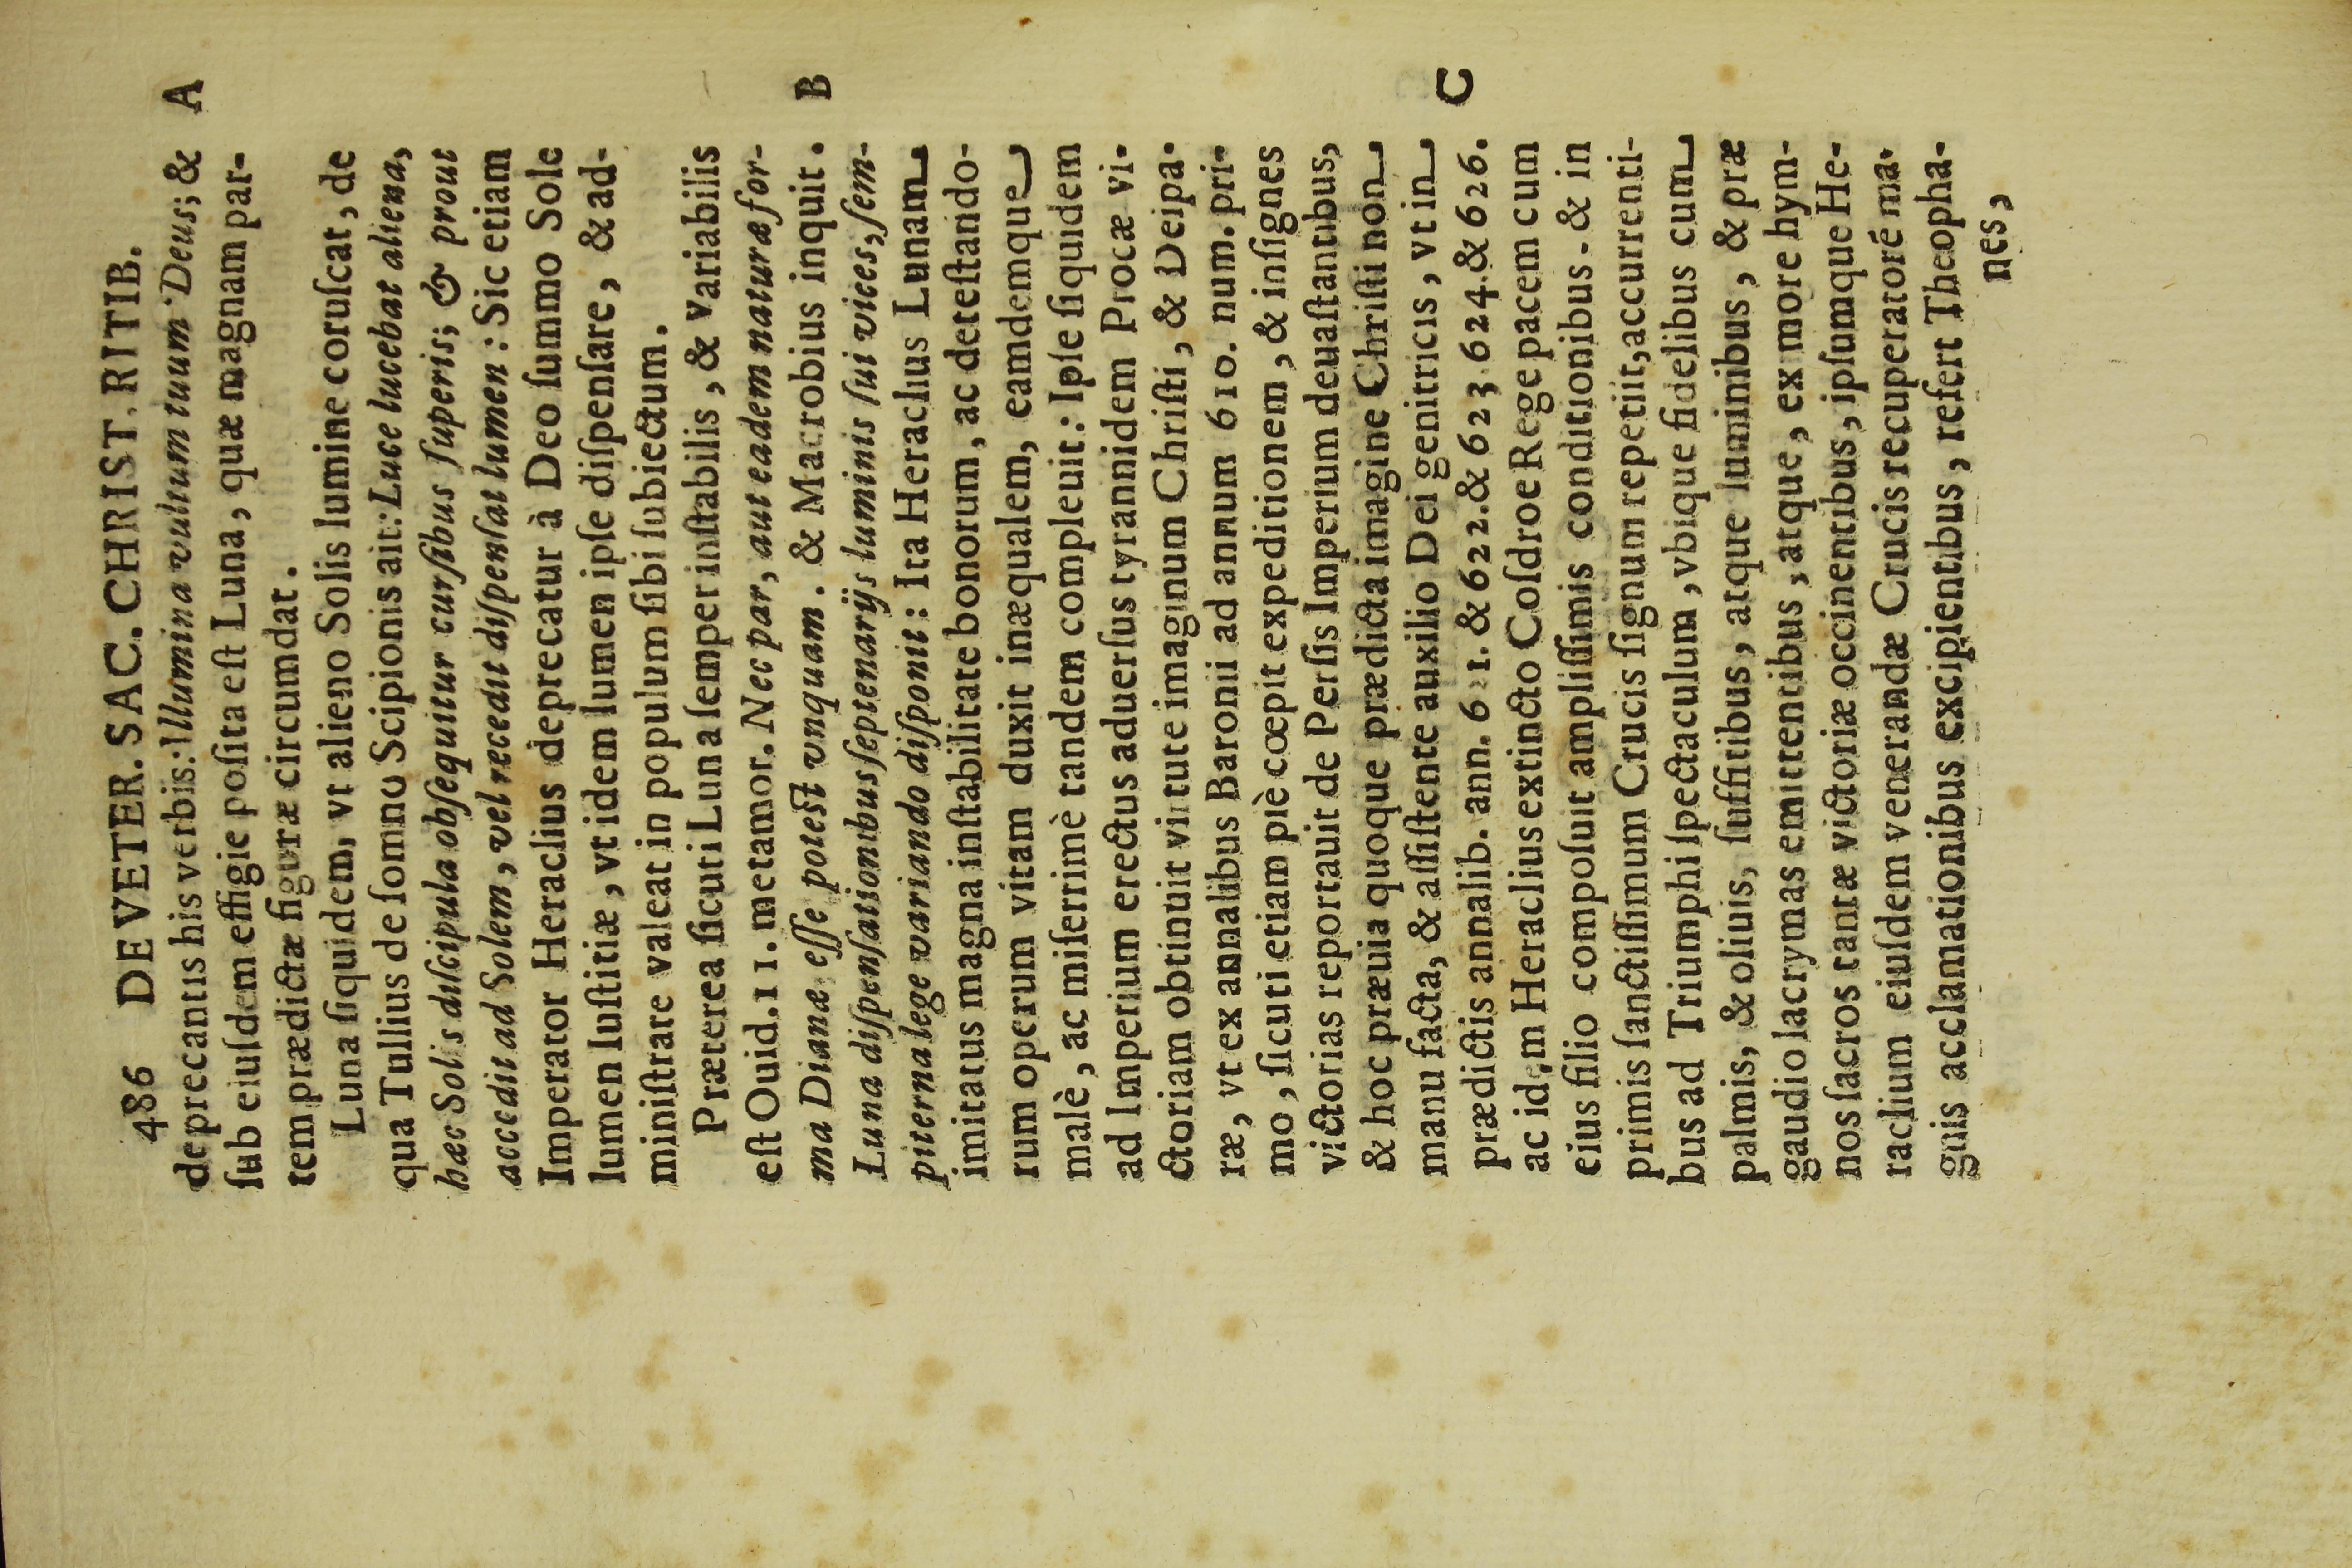 486 DE VETER. SAC. CHRIST. RITIB.
deprecantis his verbis: Illumina vultum tuum Deus; & A
ſub eiuſdem effigie poſita eſt Luna, quæ magnam par-
tem prædictæ figuræ circumdat.
Luna ſiquidem, vt alieno Solis lumine coruſcat, de
qua Tullius de ſomno Scipionis ait: Luce lucebat aliena,
hæc Solis diſcipula obſequitur curſibus ſuperis; & prout
accedit ad Solem, vel recedit diſpenſat lumen: Sic etiam
Imperator Heraclius deprecatur à Deo ſummo Sole
lumen Iuſtitiæ, vt idem lumen ipſe diſpenſare, & ad-
miniſtrare valeat in populum ſibi ſubiectum.
Præterea ſicuti Luna ſemper inſtabilis, & variabilis
eſt Ouid. 11. metamor. Nec par, aut eadem naturæ for-
ma Dianæ eſſe poteſt vnquam. & Macrobius inquit. B
Luna diſpenſationibus ſeptenarijs luminis ſui vices, ſem-
piterna lege variando diſponit: Ita Heraclius Lunam
imitatus magna inſtabilitate bonorum, ac deteſtando-
rum operum vitam duxit inæqualem, eamdemque
malè, ac miſerrimè tandem compleuit: Ipſe ſiquidem
ad Imperium erectus aduerſus tyrannidem Procæ vi-
ctoriam obtinuit virtute imaginum Chriſti, & Deipa-
ræ, vt ex annalibus Baronii ad annum 610. num. pri-
mo, ſicuti etiam piè cœpit expeditionem, & inſignes
victorias reportauit de Perſis Imperium deuaſtantibus,
& hoc præuia quoque prædicta imagine Chriſti non
manu facta, & aſſiſtente auxilio Dei genitricis, vt in
prædictis annalib. ann. 621. & 622. & 623 624. & 626. C
ac idem Heraclius extincto Coſdroe Rege pacem cum
eius filio compoſuit ampliſſimis conditionibus. & in
primis ſanctiſſimum Crucis ſignum repetiit, accurrenti-
bus ad Triumphi ſpectaculum, vbique fidelibus cum
palmis, & oliuis, ſuffitibus, atque luminibus, & præ
gaudio lacrymas emittentibus, atque, ex more hym-
nos ſacros tantæ victoriæ occinentibus, ipſumque He-
raclium eiuſdem venerandæ Crucis recuperatoré ma-
gnis acclamationibus excipientibus, refert Theopha-
nes,